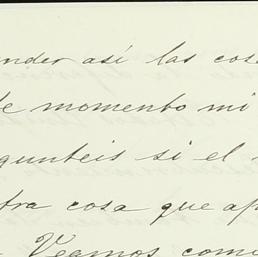 nder así las cos
de momento mi
gunteis si el
tra cosa que ap
Veamos com